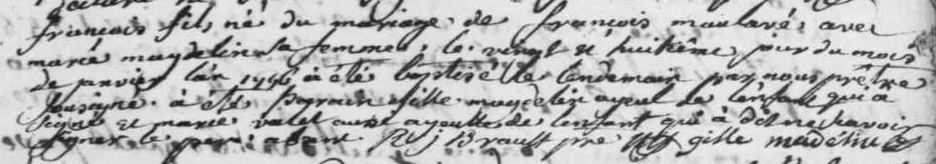 françois fils né du mariage de françois maulavé avec
marie maydelin sa femme, le vingt et huitième jour du mois
de janvier l'an 1756 à été baptisé le lendemain par nous prêtre
soussigné. à été parain gille maydelin ayeul de l'enfant qui à
signé et marie valet aussi ayeulle de l'enfant qui à dit ne sçavoir
signer le pere absent. R J Brault ptre gille madelin